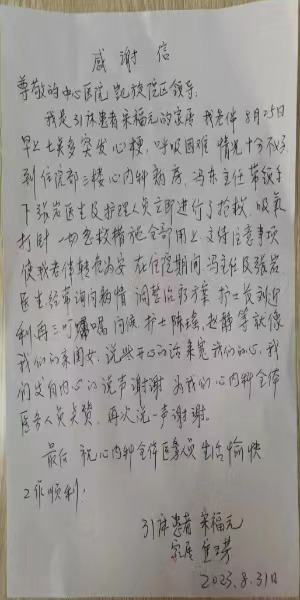 感谢信
尊敬的中心医院凯旋院区领导:
我是31床患者宋福元的家属 我老伴8月25日
早上七点多突发心梗,呼吸困难 情况十分不好
到住院部三楼心内科病房,冯东主任带领手
下张岩医生及护理人员立即进行了抢救,吸氧
打针 一切急救措施全部用上 交待注意事项
使我老伴转危为安 在住院期间冯主任及张岩
医生经常询问病情 调整治疗方案 护士长刘近
利再三叮嘱 问候 护士陈瑶,赵静等就像
我们的亲闺女,说些开心的话来宽我们的心,我
们发自内心的说声谢谢 为我们心内科全体
医务人员点赞,再次说一声谢谢。
最后 祝心内科全体医务人员 生活愉快
工作顺利!
31床患者 宋福元
家属
2023.8.31日